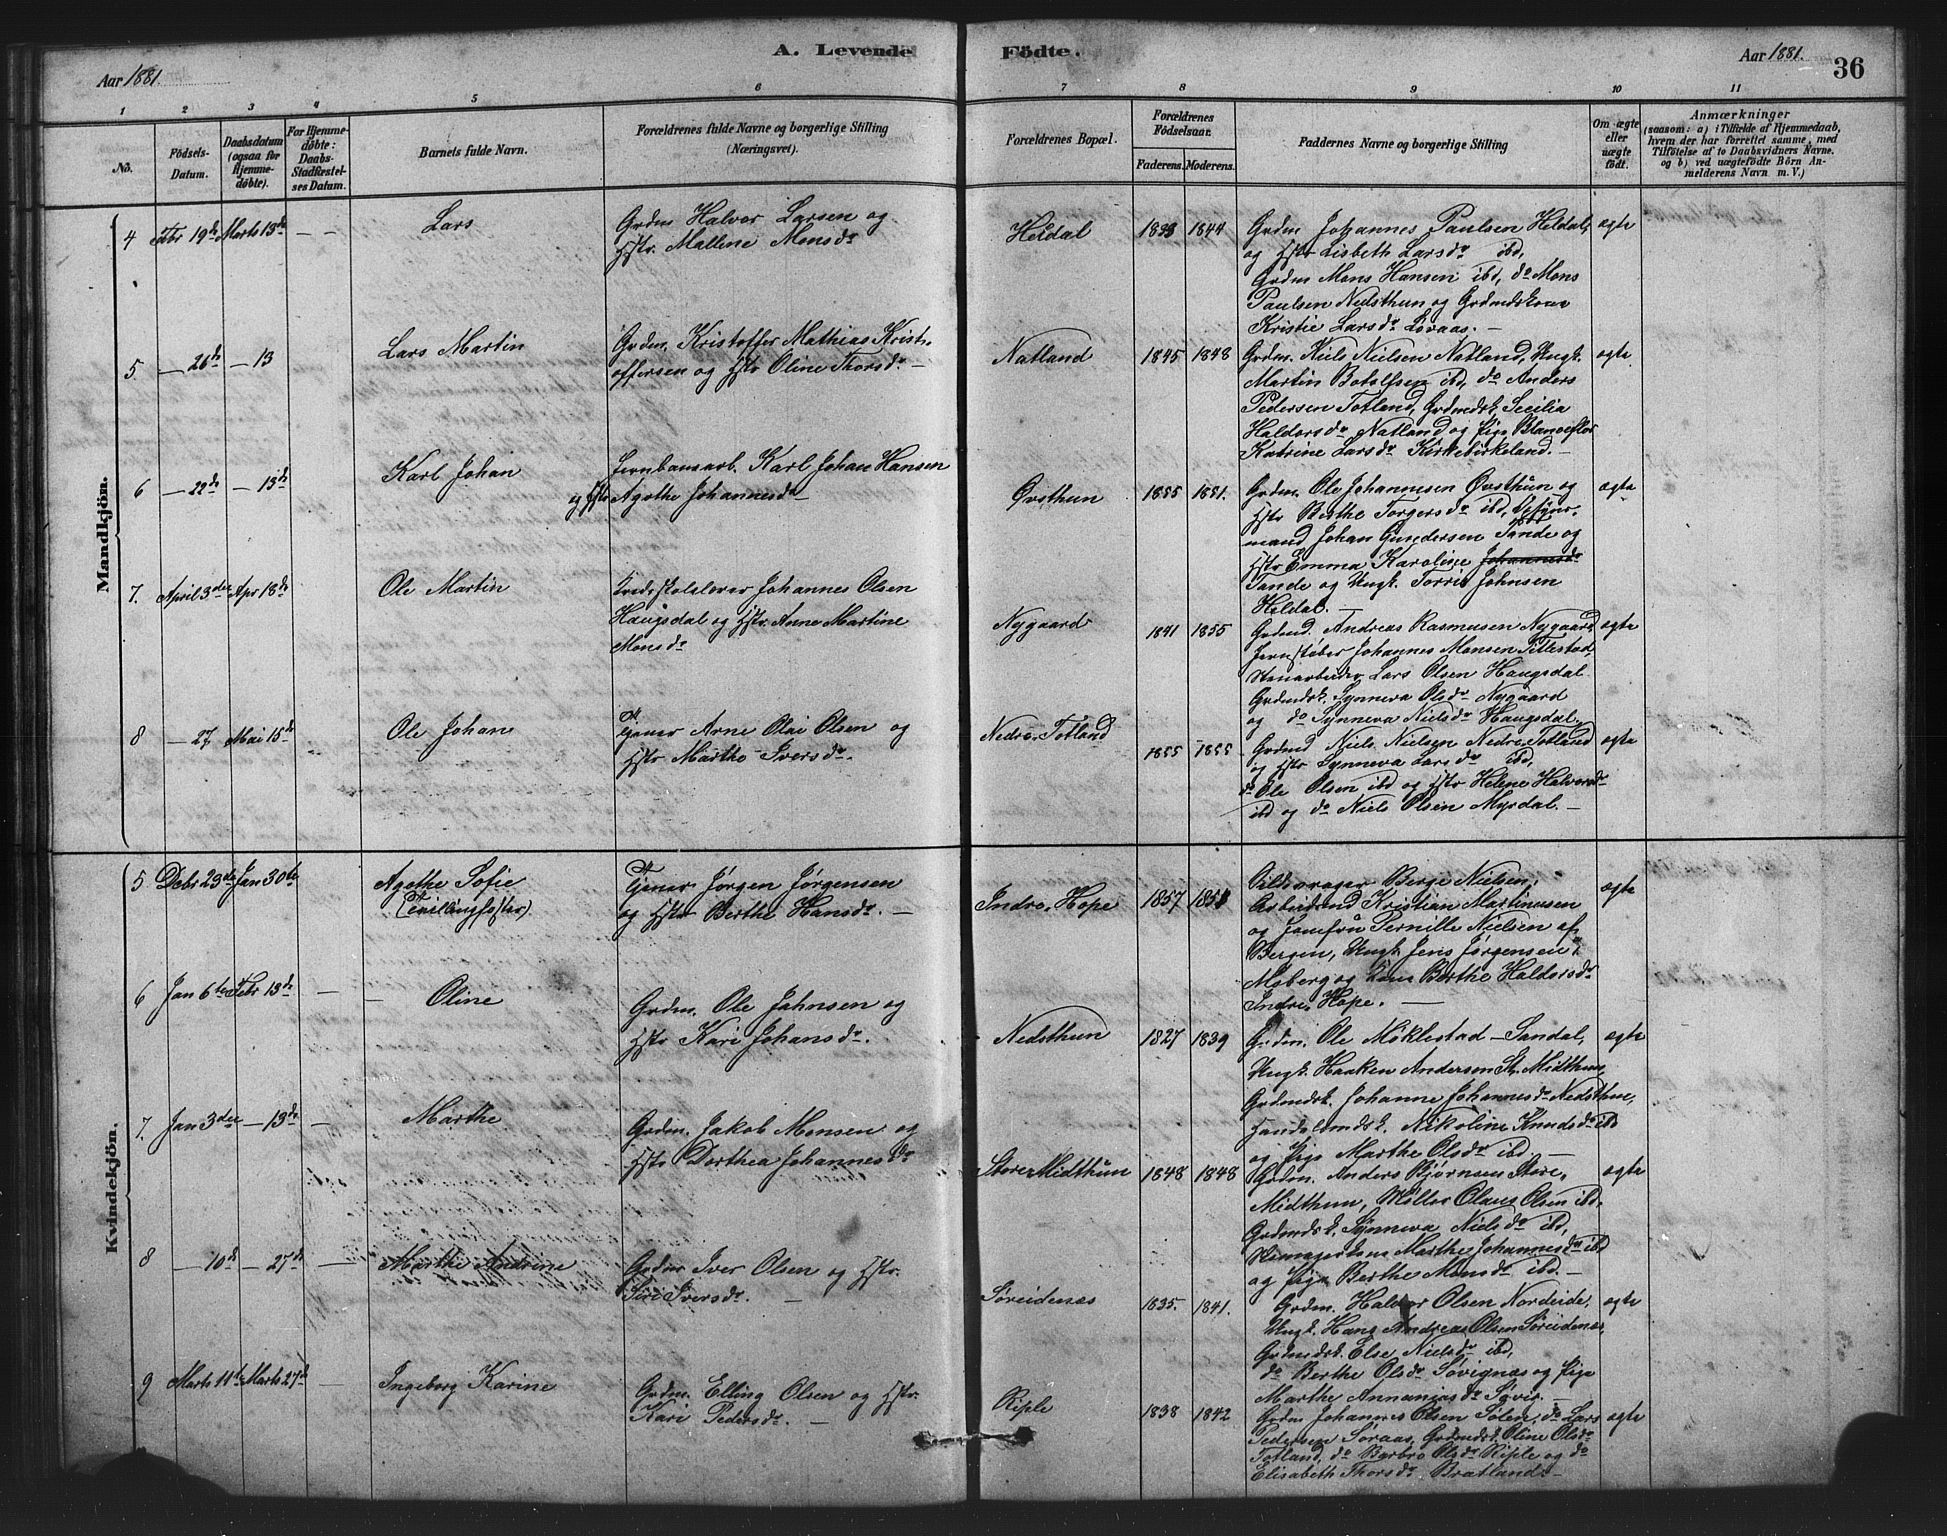 A. Levende
Födte.
Aar 1881.
Aar 1881.
36
1 2 3 4 5 6 7 8 9 10 11
No.
Födsels-
Datum.
Daabsdatum
(ogsaa for
Hjemme-
døbte).
For Hjemme-
døbte:
Daabs-
Stadfæstel-
ses Datum.
Barnets fulde Navn.
Forældrenes fulde Navne og borgerlige Stilling
(Næringsvei).
Forældrenes Bopæl.
Forældrenes
Födselsaar.
Faderens. Moderens.
Faddernes Navne og borgerlige Stilling
Om ægte
eller
uægte
födt.
Anmærkninger
(saasom: a) i Tilfælde af Hjemmedaab,
hvem der har forrettet samme, med
Tilföielse af to Daabsvidners Navne.
og b) ved uægtefödte Börn An-
melderens Navn m. V.)
Mandkjön.
4 Febr 19de Marts 13de — —
Lars
Grdm Halvor Larsen og
Hstr. Mallene Monsdr
Heldal
1833 1844
Grdm Johannes Paulsen Heldal,
og Hstr Lisbeth Larsdr ibd,
Grdm Mons Hansen ibd, do Mons
Paulsen Nedsthun og Grdmdskone
Kristie Larsdr Søraas. —
ægte
5. — 26de — 13
Lars Martin
Grdm. Kristoffer Mathias Krist-
offersen og Hstr Oline Thorsdr —
Natland
1845 1848
Grdm. Niels Nielsen Natland, Ungk.
Martin Botolfsen ibd, do Anders
Pedersen Totland, Grdmdsk. Secilia
Haldorsdr Natland og Pige Blanceflor
Katrine Larsdr Kirkebirkeland. —
ægte
6 — 22de — 13de
Karl Johan
Jernbanearb. Karl Johan Hansen
og Hstr Agathe Johannesdr —
Øvsthun
1855 1851.
Grdm. Ole Johannesen Øvsthun og
Hstr Berthe Torgersdr ibd,
mand Johan Gundersen Tande og
Hstr Emma Karoline Johannesdr
Tande og Ungk. Torris Johnsen
Heldal. —
ægte
7. April 3die Apr 18de
Ole Martin
Kredsskolelærer Johannes Olsen
Haugsdal og Hstr. Anne Martine
Monsdr
Nygaard
1841 1855
Grdmd. Andreas Rasmusen Nygaard,
Jernstøber Johannes Monsen Titlestad,
Stenarbeider Lars Olsen Haugsdal
Grdmdsk. Synneva Olsdr Nygaard
og do Synneva Nielsdr Haugsdal.
ægte
8 — 27 Mai 15de
Ole Johan
Arne Olai Olsen og
Hstr Marthe Iversdr.
Nedre Totland
1855 1855
Grdmd Niels Nielsen Nedre Totland
og Hstr Synneva Larsdr ibd,
do Ole Olsen ibd og Hstr Helene Halvorsdr
ibd og do Niels Olsen Myrdal. —
ægte
Kvindekjön.
5 Debr 23de Jan 30te
Agathe Sofie
(Tvillingsøster)
Jørgen Jørgensen
og Hstr Berthe Hansdr. —
Indre Hope
1857
Berge Nielsen,
Arbeidsmd Kristian Martinusen
og Jomfru Pernille Nielsen af
Bergen, Ungk. Jens Jørgensen
Moberg og Kone Berthe Haldorsdr
Indre Hope. —
ægte
6 Jan 6te Febr 13de —
Oline
Grdm. Ole Johnsen og
Hstr Kari Johansdr.
Nedsthun
1827 1839
Grdm. Ole Møklestad — Sandal,
Ungk. Haaken Andersen St. Midthun,
Grdmdsk. Johanne Johannesdr Nedsthun,
Handelsmdsk. Nikoline Knudsdr ibd
og Pige Marthe Olsdr ibd —
ægte
7. Jan 3die — 13de —
Marthe
Grdm. Jakob Monsen og
Hstr Dorthea Johannesdr
Store Midthun
1848 1848
Grdm. Anders Bjørnsen Store
Midthun, Møller Olaus Olsen ibd,
Grdmdsk. Synneva Nielsdr ibd,
Marthe Johannesdr ibd
og Pige Berthe Monsdr ibd. —
ægte
8 — 10de — 27de —
Marthe Andrine
Grdm Iver Olsen og Hstr.
Siri Iversdr. —
Søreidenæs
1835. 1841.
Grdm. Haldor Olsen Nordeide,
Ungk. Hans Andreas Olsen Søreidenæs,
Grdmdsk. Else Nielsdr ibd,
do Berthe Olsdr Søvignæs og Pige
Marthe Annaniasdr Søvig. —
ægte
9 Marts 11te Marts 27de —
Ingeborg Karine
Grdm. Elling Olsen og Hstr.
Kari Pedersdr. —
Riple
1838 1842
Grdm Johannes Olsen Sølen, do Lars
Pedersen Søraas, Grdmdsk. Oline Olsdr
Totland, do Olsdr Riple og do
Elisabeth Thorsdr Bratland —
ægte